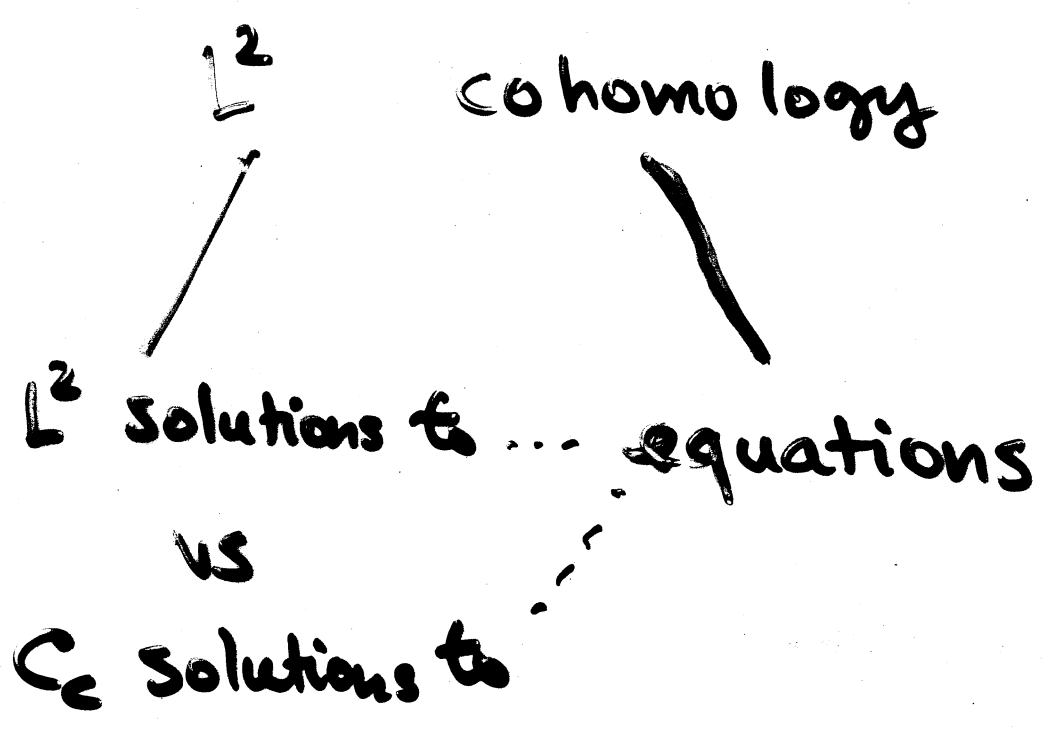 L² cohomology
L² solutions to ... equations
vs
Cc solutions to